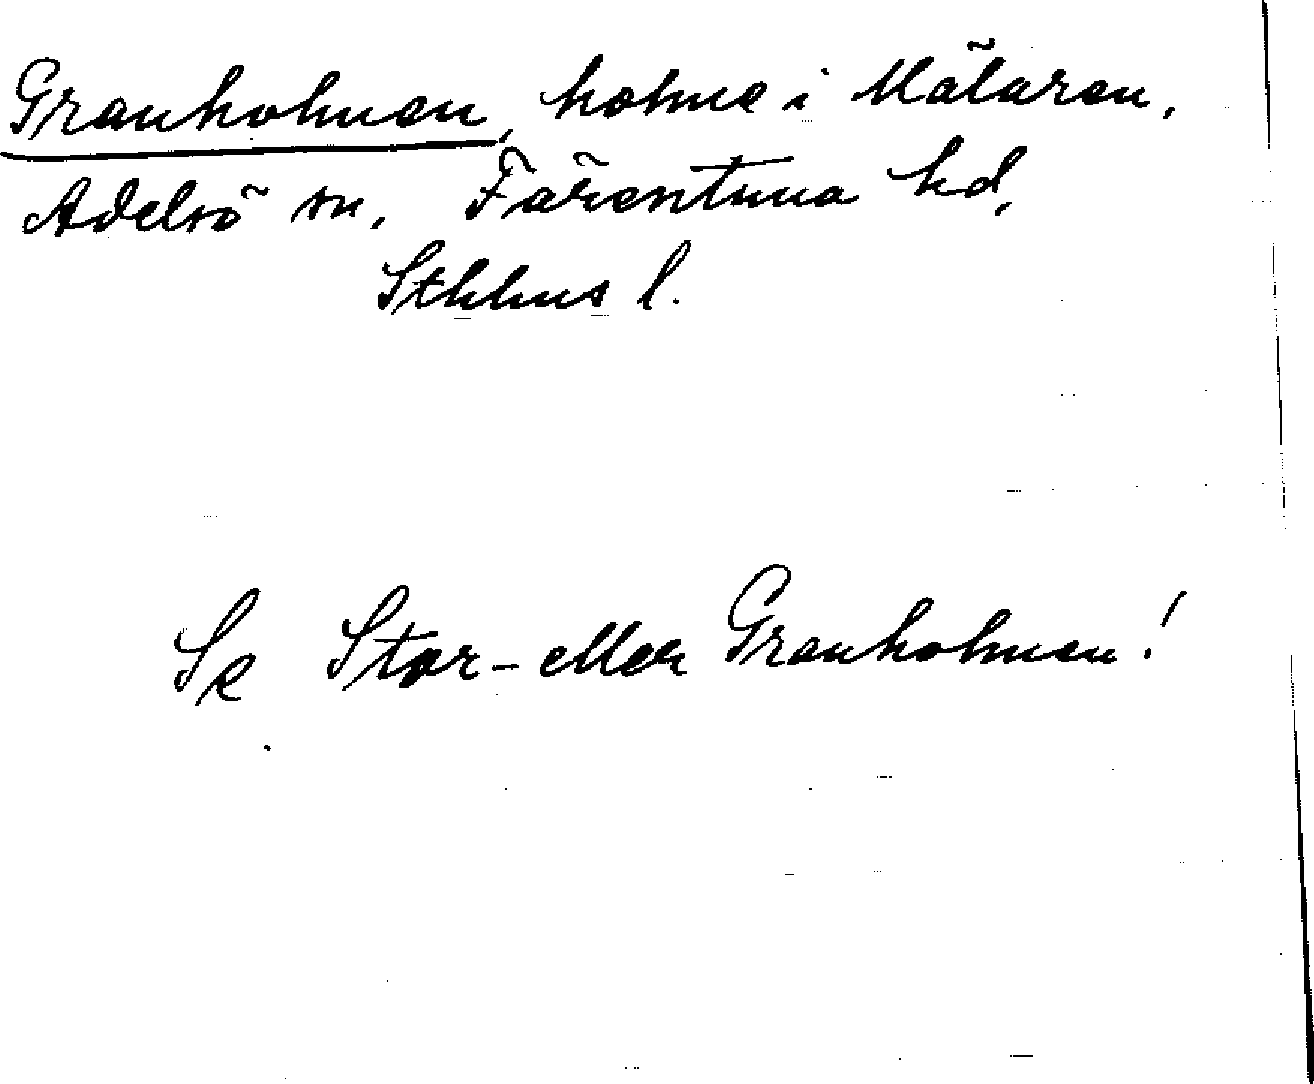 Granholmen, holme i Mälaren,
Adelsö sn, Färentuna hd,
Sthlms l.
Se Stor- eller Granholmen!